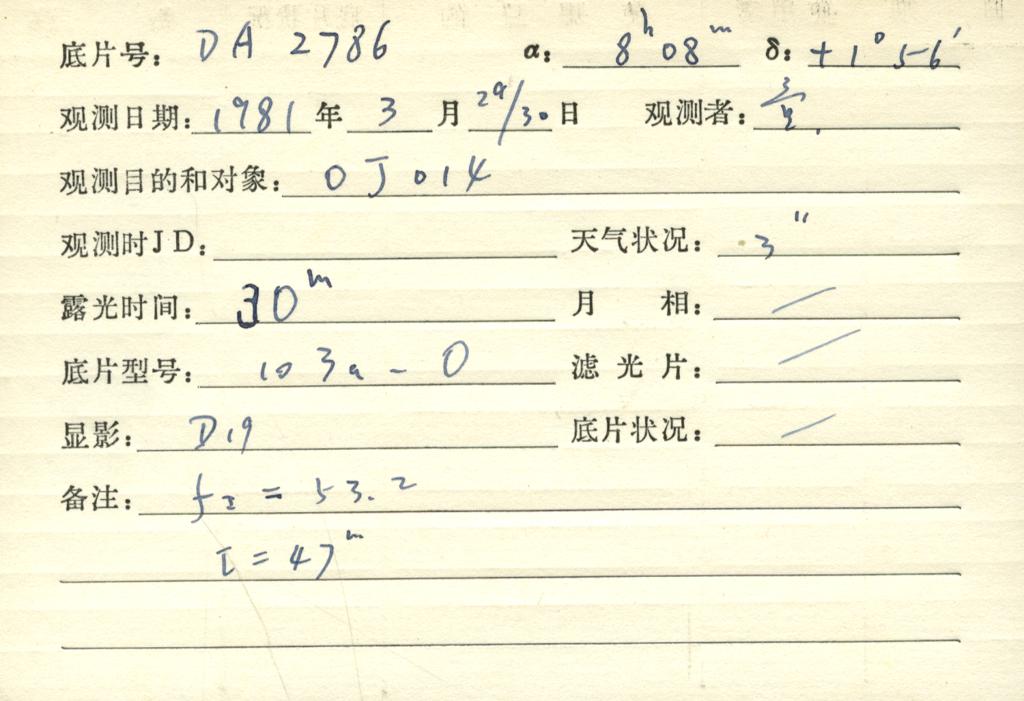 底片号: DA 2786 α: 8ʰ 08ᵐ δ: +1° 56′
观测日期: 1981 年 3 月 29/30 日 观测者:
观测目的和对象: OJ 014
观测时JD: 天气状况: 3″
露光时间: 30ᵐ 月 相: /
底片型号: 103a-O 滤 光 片: /
显影: D19 底片状况: /
备注: = 53.2
= 47ᵐ